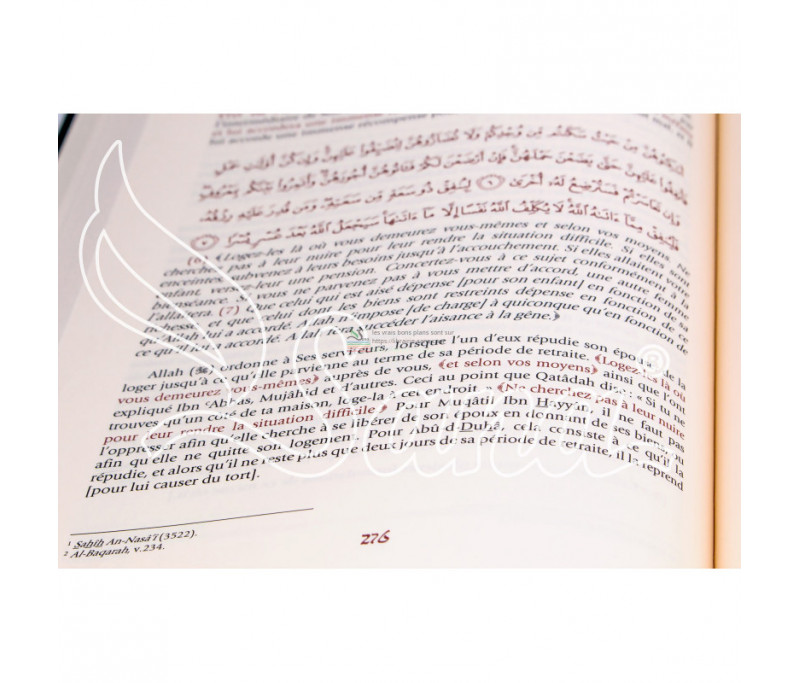 et lui accordera une immense récompense
أَسْكِنُوهُنَّ مِنْ حَيْثُ سَكَنتُم مِّن وُجْدِكُمْ وَلَا تُضَآرُّوهُنَّ لِتُضَيِّقُوا۟ عَلَيْهِنَّ وَإِن كُنَّ أُو۟لَٰتِ حَمْلٍ
فَأَنفِقُوا۟ عَلَيْهِنَّ حَتَّىٰ يَضَعْنَ حَمْلَهُنَّ فَإِنْ أَرْضَعْنَ لَكُمْ فَـَٔاتُوهُنَّ أُجُورَهُنَّ وَأْتَمِرُوا۟ بَيْنَكُم بِمَعْرُوفٍ
وَإِن تَعَاسَرْتُمْ فَسَتُرْضِعُ لَهُۥٓ أُخْرَىٰ ﴿٦﴾ لِيُنفِقْ ذُو سَعَةٍ مِّن سَعَتِهِۦ وَمَن قُدِرَ عَلَيْهِ رِزْقُهُۥ
فَلْيُنفِقْ مِمَّآ ءَاتَىٰهُ ٱللَّهُ لَا يُكَلِّفُ ٱللَّهُ نَفْسًا إِلَّا مَآ ءَاتَىٰهَا سَيَجْعَلُ ٱللَّهُ بَعْدَ عُسْرٍ يُسْرًا ﴿٧﴾
(6) ﴾Logez-les là où vous demeurez vous-mêmes et selon vos moyens. Ne
cherchez pas à leur nuire pour leur rendre la situation difficile. Si elles sont
enceintes, subvenez à leurs besoins jusqu'à l'accouchement. Si elles allaitent votre
enfant, versez-leur une pension. Concertez-vous à ce sujet conformément à la
bienséance. Si vous ne parvenez pas à vous mettre d'accord, une autre femme
l'allaitera. (7) Que celui qui est aisé dépense [pour son enfant] en fonction de sa
richesse, et que celui dont les biens sont restreints dépense en fonction de ce
qu'Allah lui a accordé. Allah n'impose [de charge] à quiconque qu'en fonction de
ce qu'Il lui a accordé. Allah fera succéder l'aisance à la gêne.﴿
les vrais bons plans sont sur
Allah (ﷻ) ordonne à Ses serviteurs, lorsque l'un d'eux répudie son épouse, de la
loger jusqu'à ce qu'elle parvienne au terme de sa période de retraite. ﴾Logez-les là où
vous demeurez vous-mêmes﴿ auprès de vous, ﴾et selon vos moyens﴿ ainsi que l'ont
expliqué Ibn 'Abbas, Mujâhid et d'autres. Ceci au point que Qatâdah dit : « Si tu ne
trouves qu'un côté de ta maison, loge-la à cet endroit. » ﴾Ne cherchez pas à leur nuire
pour leur rendre la situation difficile.﴿ Pour Muqâtil Ibn Hayyân, il ne faut pas
l'oppresser afin qu'elle cherche à se libérer de son époux en donnant de ses biens, ou
afin qu'elle ne quitte son logement. Pour Abû d-Duhâ, cela consiste à ce qu'il la
répudie, et alors qu'il ne reste plus que deux jours de sa période de retraite, il la reprend
[pour lui causer du tort].
¹ Sahîh An-Nasâ'î (3522).
² Al-Baqarah, v.234.
276
Sana
®